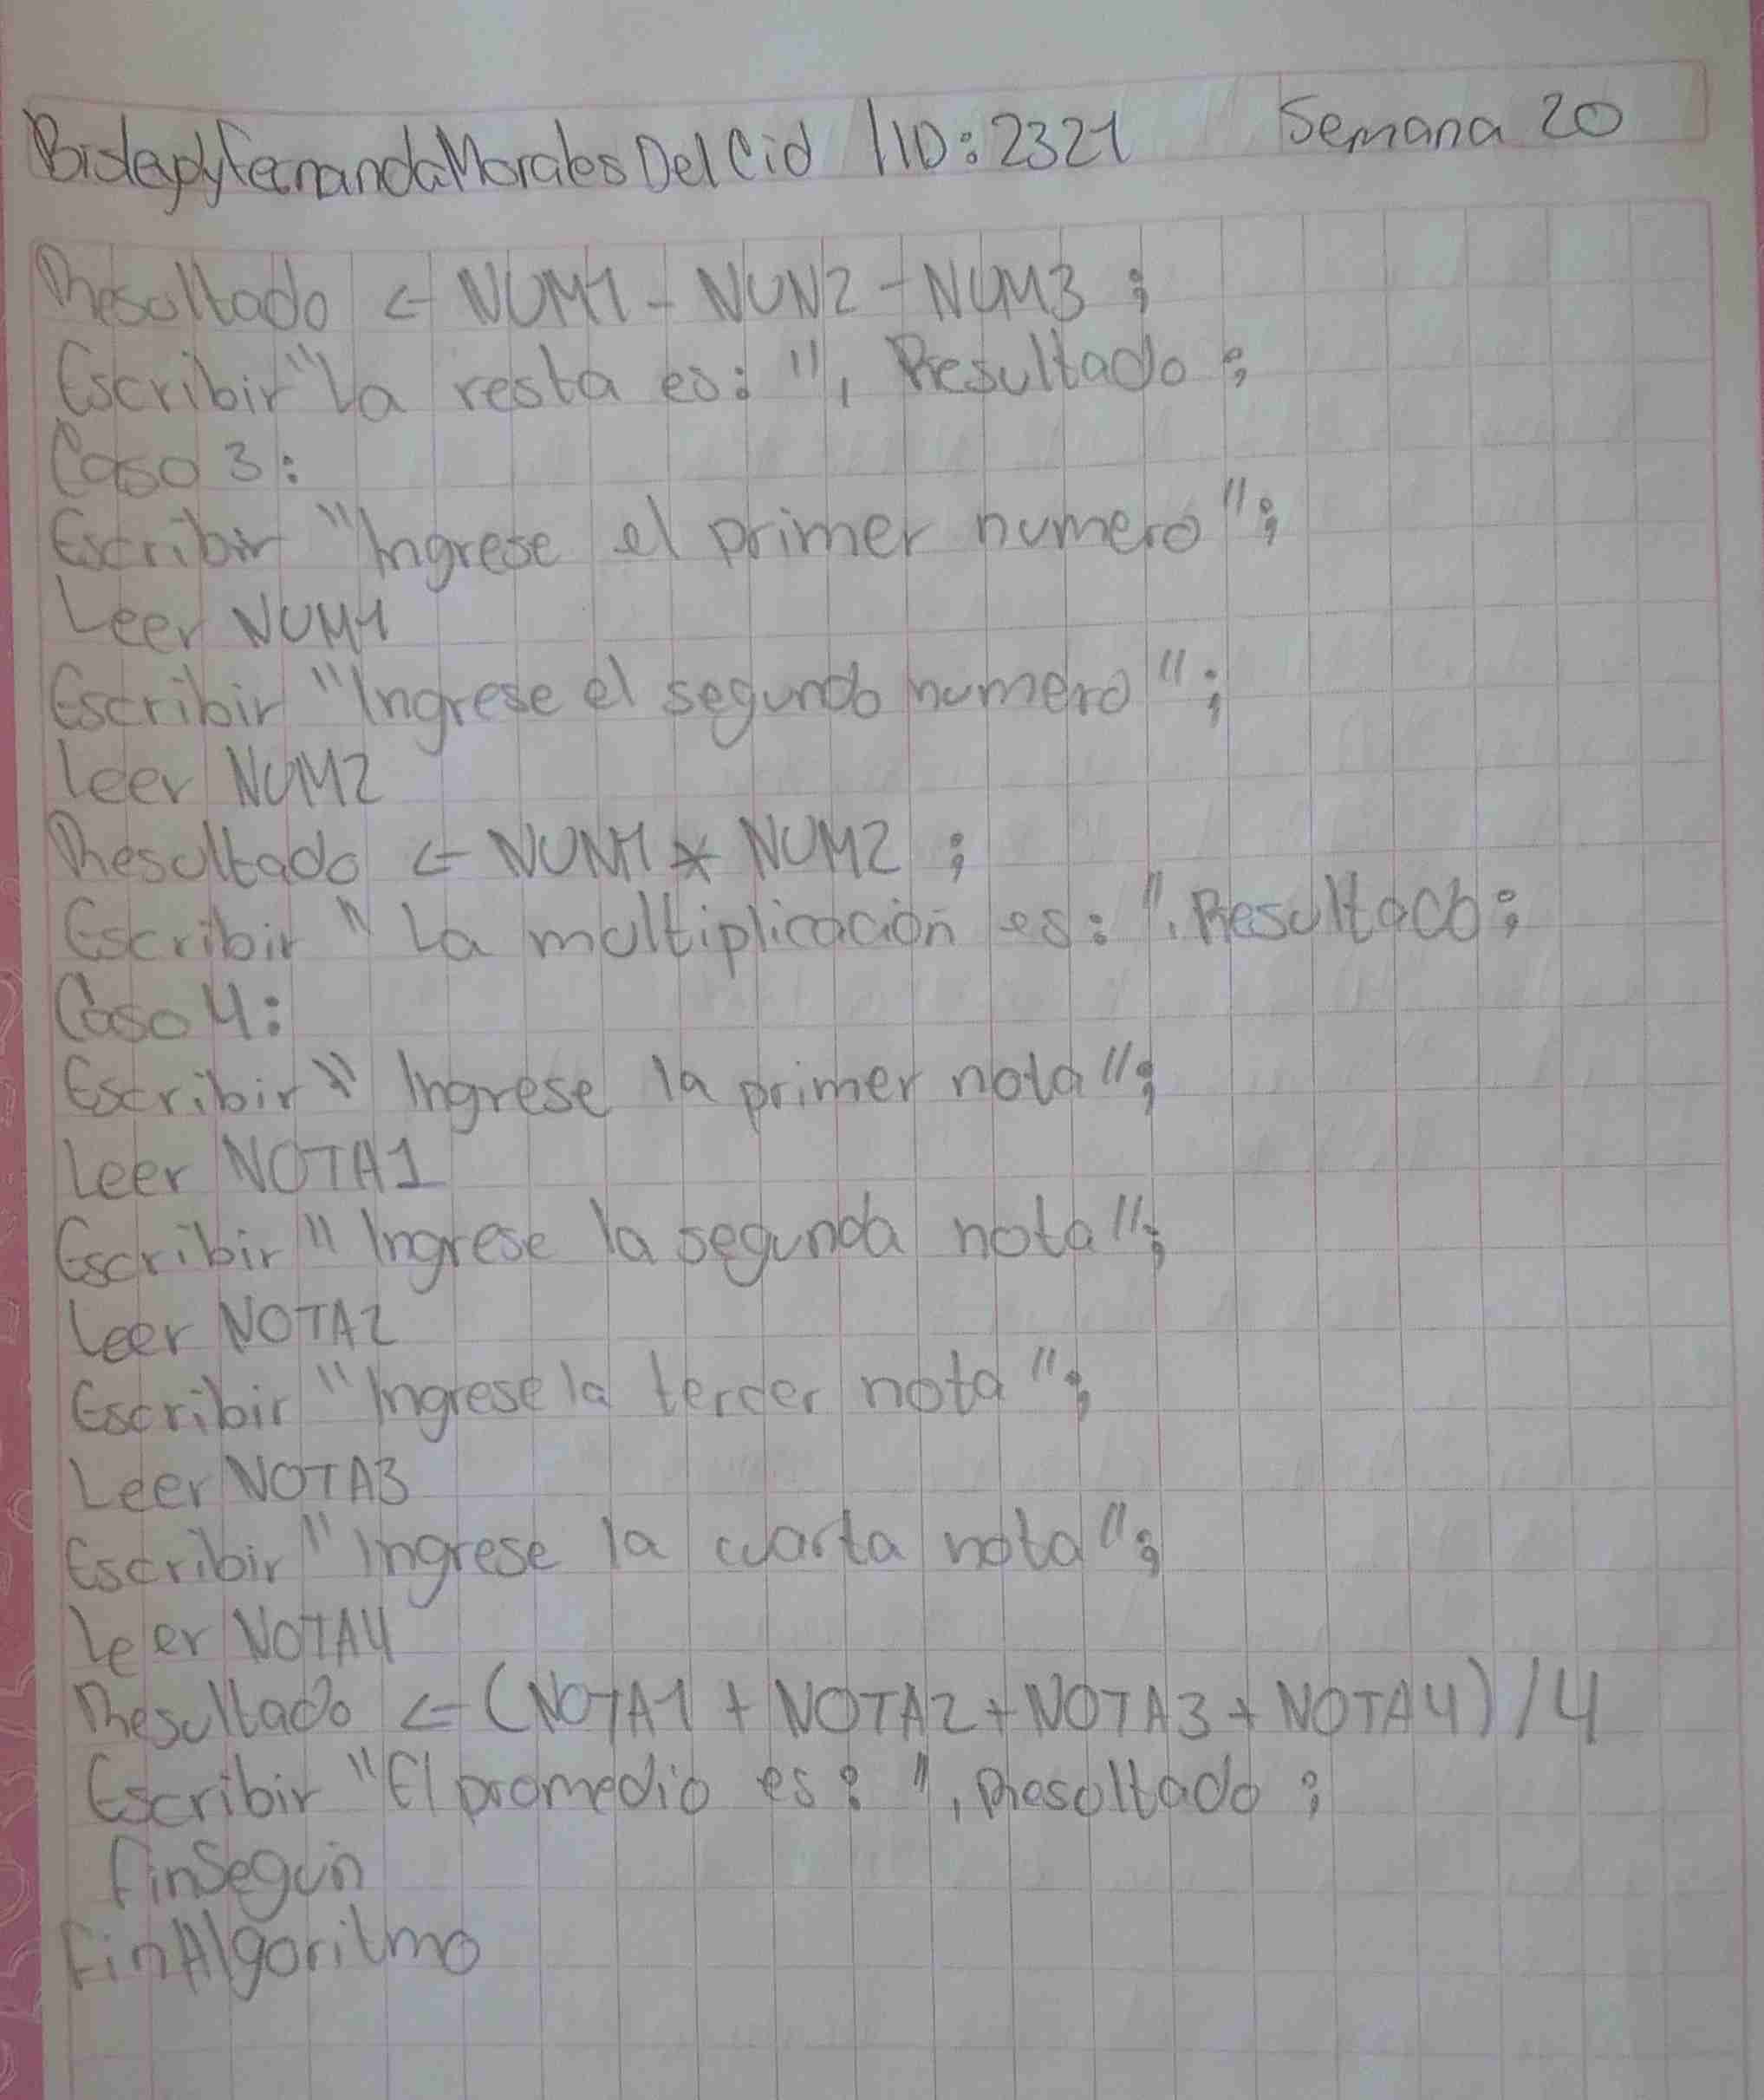 Fernanda Morales Del Cid / ID: 2321 Semana 20
Resultado ← NUM1 - NUN2 - NUM3 ;
Escribir "La resta es: ", Resultado ;
Caso 3:
Escribir "Ingrese el primer numero";
Leer NUM1
Escribir "Ingrese el segundo numero";
Leer NUM2
Resultado ← NUM1 * NUM2 ;
Escribir "La multiplicación es: ", Resultado;
Caso 4:
Escribir "Ingrese la primer nota";
Leer NOTA1
Escribir "Ingrese la segunda nota";
Leer NOTA2
Escribir "Ingrese la tercer nota";
Leer NOTA3
Escribir "Ingrese la cuarta nota";
Leer NOTA4
Resultado ← (NOTA1 + NOTA2 + NOTA3 + NOTA4) / 4
Escribir "El promedio es: ", Resultado ;
FinSegun
FinAlgoritmo